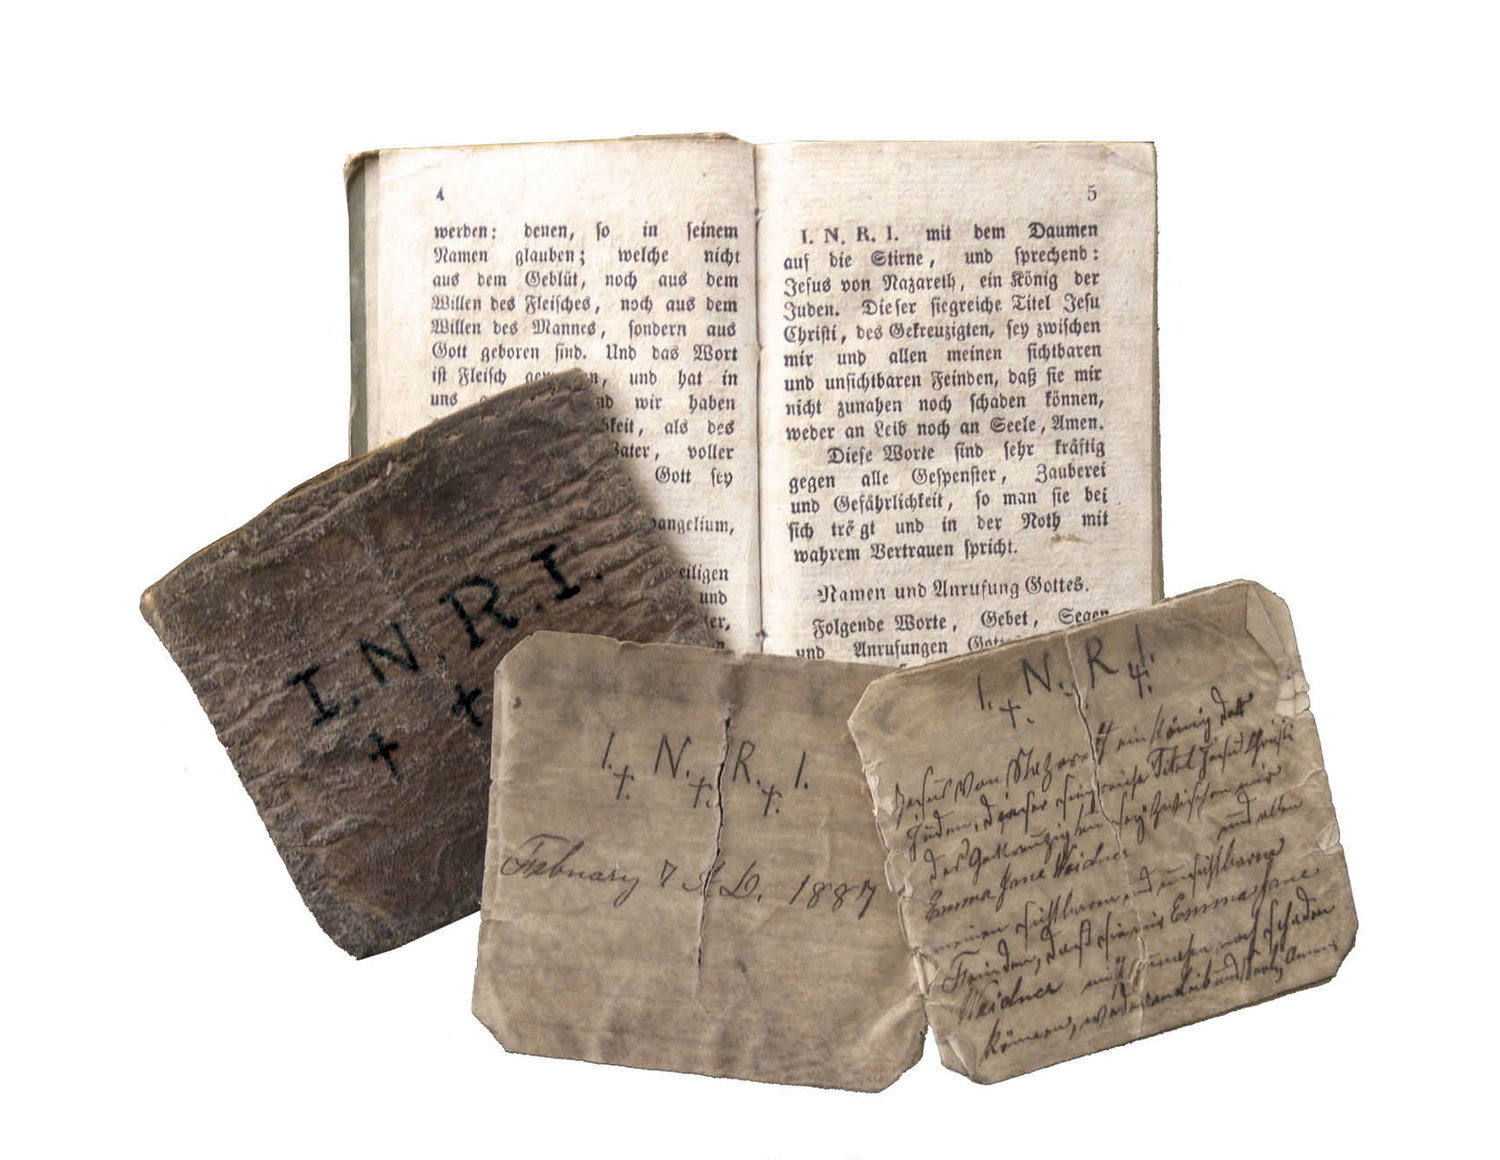 4
werden: denen, so in seinem
Namen glauben; welche nicht
aus dem Geblüt, noch aus dem
Willen des Fleisches, noch aus dem
Willen des Mannes, sondern aus
Gott geboren sind. Und das Wort
ist Fleisch und hat in
uns wir haben
als des
voller
Gott sey
5
I. N. R. I. mit dem Daumen
auf die Stirne, und sprechend:
Jesus von Nazareth, ein König der
Juden. Dieser siegreiche Titel Jesu
Christi, des Gekreuzigten, sey zwischen
mir und allen meinen sichtbaren
und unsichtbaren Feinden, daß sie mir
nicht zunahen noch schaden können,
weder an Leib noch an Seele, Amen.
Diese Worte sind sehr kräftig
gegen alle Gespenster, Zauberei
und Gefährlichkeit, so man sie bei
sich trägt und in der Noth mit
wahrem Vertrauen spricht.
Namen und Anrufung Gottes.
Folgende Worte, Gebet, Segen
und Anrufungen
I. N. R. I.
I. N. R. I.
February 7 A.D. 1887
I. N. R. I.
Jesus von Nazareth ein König der
Juden, dieser siegreiche Titel Jesus Christi
des Gekreuzigten sey zwischen mir
Emma Jane Weidner und allen
meinen sichtbaren und unsichtbaren
Feinden, daß sie mir Emma Jane
Weidner nicht zunahen noch schaden
können, weder an Leib und Seele, Amen